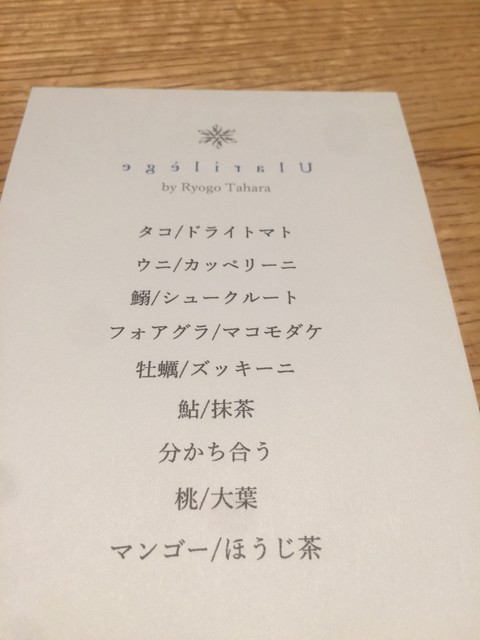 Ularilége
by Ryogo Tahara
タコ/ドライトマト
ウニ/カッペリーニ
鰯/シュークルート
フォアグラ/マコモダケ
牡蠣/ズッキーニ
鮎/抹茶
分かち合う
桃/大葉
マンゴー/ほうじ茶